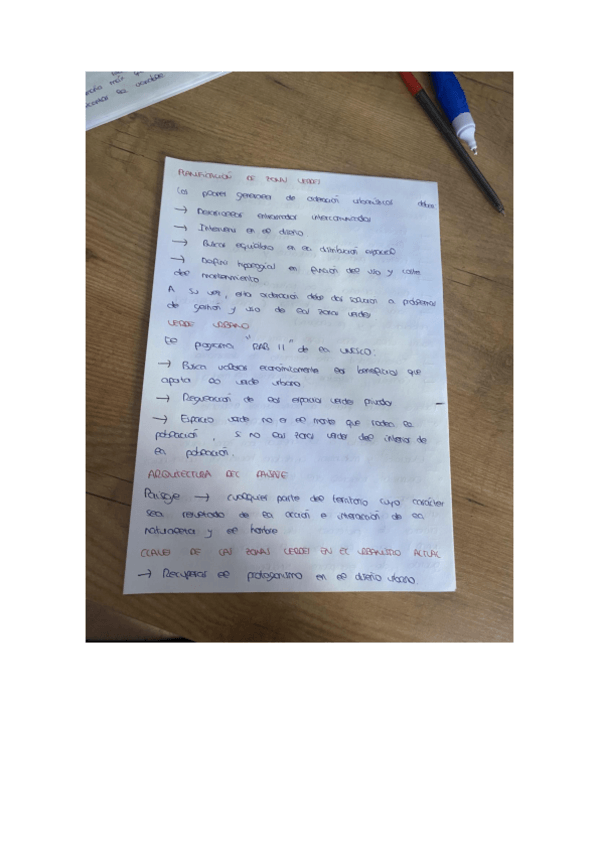 PLANIFICACIÓN DE ZONAS VERDES
Los planes generales de ordenación urbanísticos deben
→ Desarrollar entramados intercomunicados
→ Intervenir en el diseño
→ Buscar equilibrio en la distribución espacial
→ Definir tipología en función del uso y coste
del mantenimiento.
A su vez, esta ordenación debe dar solución a problemas
de gestión y uso de las zonas verdes
VERDE URBANO
El programa "MAB 11" de la UNESCO:
→ Busca valorar económicamente los beneficios que
aporta el verde urbano
→ Regulación de los espacios verdes privados
→ Espacio verde no es el monte que rodea la
población, si no las zonas verdes del interior de
la población.
ARQUITECTURA DEL PAISAJE
Paisaje → cualquier parte del territorio cuyo carácter
sea resultado de la acción e interacción de la
naturaleza y el hombre
CLAVES DE LAS ZONAS VERDES EN EL URBANISMO ACTUAL
→ Recuperar el protagonismo en el diseño urbano